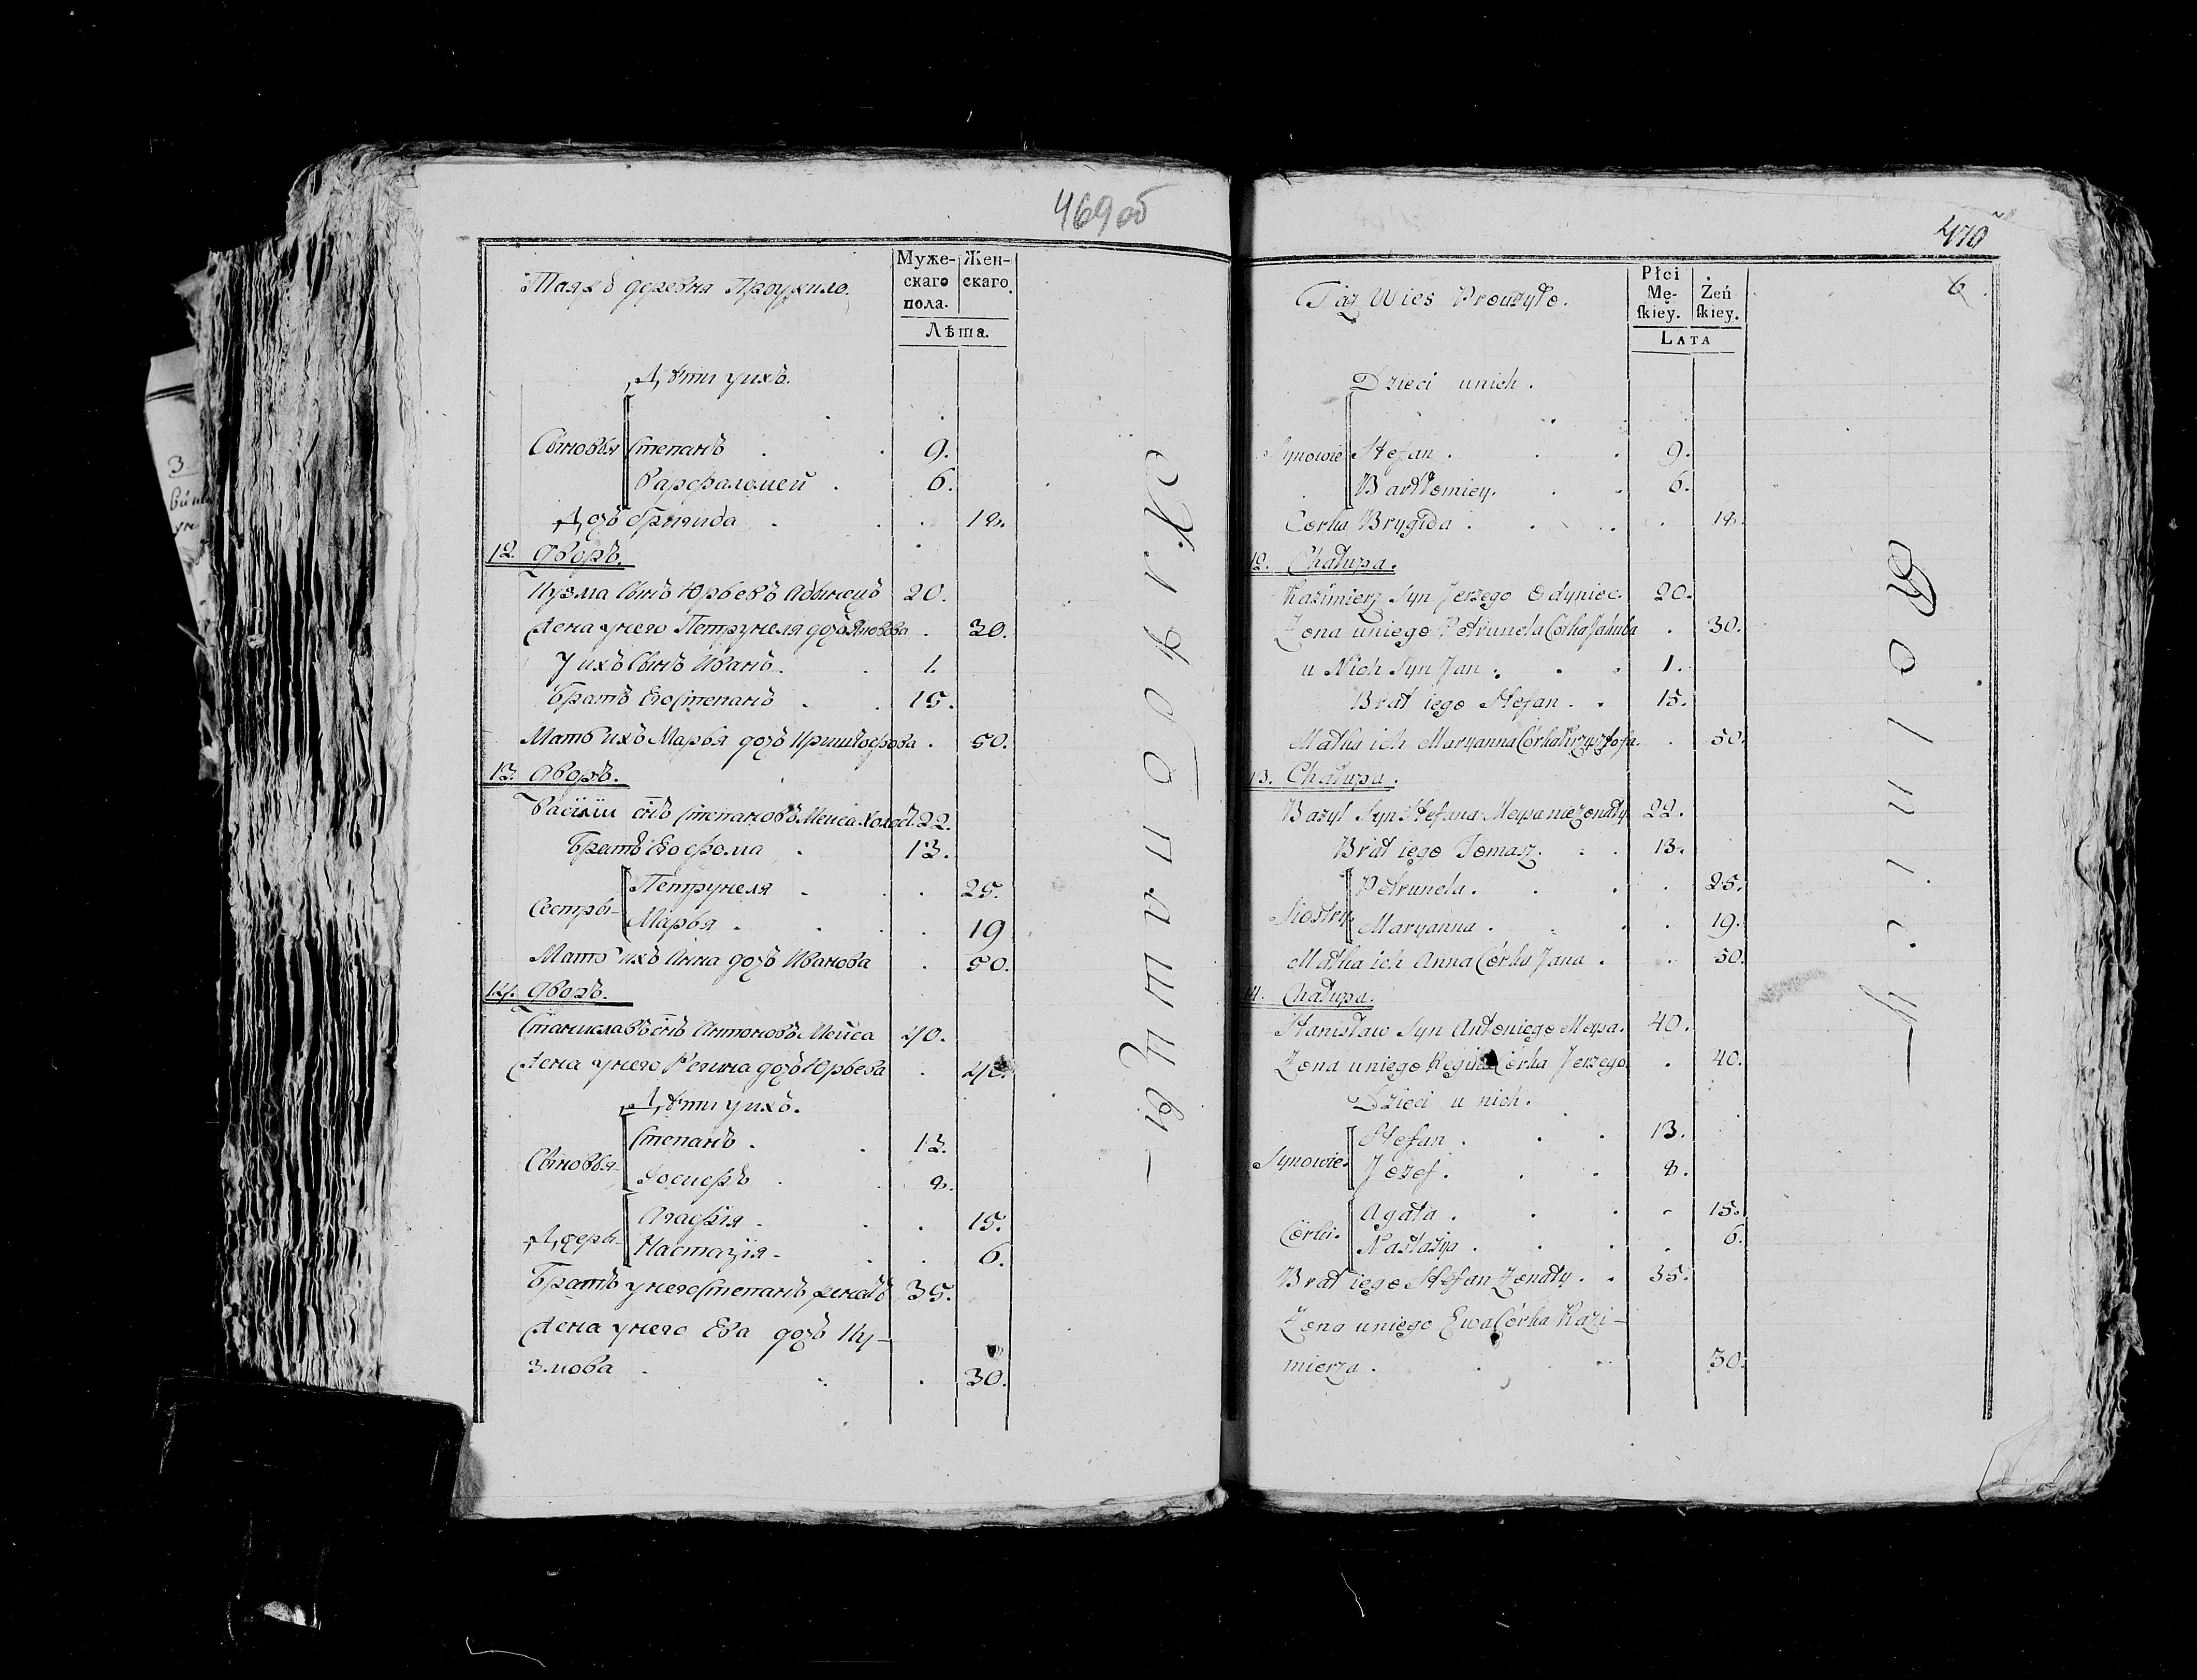 469 об
Таяжъ деревня Проужило.
Муже-
скаго
пола.
Жен-
скаго.
Лѣта.
Дѣти у ихъ.
Сыновья Степанъ 9.
Варфаломей 6.
Дочь Бригида 12.
12. Дворъ.
Кузма Сынъ Юрьевъ Адынецъ 20.
Жена унего Петрунеля дочь Якова 30.
У ихъ Сынъ Иванъ 1.
Братъ Его Степанъ 15.
Мать ихъ Марья дочь Криштофова 50.
13. Дворъ.
Василии снъ Степановъ Мейса Холост. 22.
Братъ Его Фома 13.
Сестры Петрунеля 25.
Марья 19
Мать ихъ Анна дочь Иванова 50.
14. Дворъ.
Станиславъ снъ Антоновъ Мейса 40.
Жена унего Регина дочь Юрьева 40.
Дѣти у ихъ.
Сыновья Степанъ 13.
Іосифъ 8.
Дчеры Агафія 15.
Настазія 6.
Братъ унего Степанъ женатъ 35.
Жена унего Ева дочь Ку-
змова 30.
470
6
Taz Wies Proużyło.
Płci
Mę-
skiey.
Żeń
skiey.
LATA
Dzieci unich.
Synowie Stefan 9.
Bartłomiey 6.
Corka Brygida 12.
12. Chałupa.
Kazimierz Syn Jerzego Odyniec 20.
Żona uniego Petrunela Córka Jakuba 30.
u Nich Syn Jan 1.
Brat iego Stefan 15.
Matka ich Maryanna Córka Krzysztofa 50.
13. Chałupa.
Bazyl Syn Stefana Meysa nieżonaty 22.
Brat iego Tomasz 13.
Siostry Petrunela 25.
Maryanna 19.
Matka ich Anna Córka Jana 50.
14. Chałupa.
Stanisław Syn Antoniego Meysa 40.
Żona uniego Regina Córka Jerzego 40.
Dzieci u nich.
Synowie Stefan 13.
Jozef 8.
Córki Agata 15.
Nastazya 6.
Brat iego Stefan Żonaty 35.
Żona uniego Ewa Córka Kazi-
mierza 30.